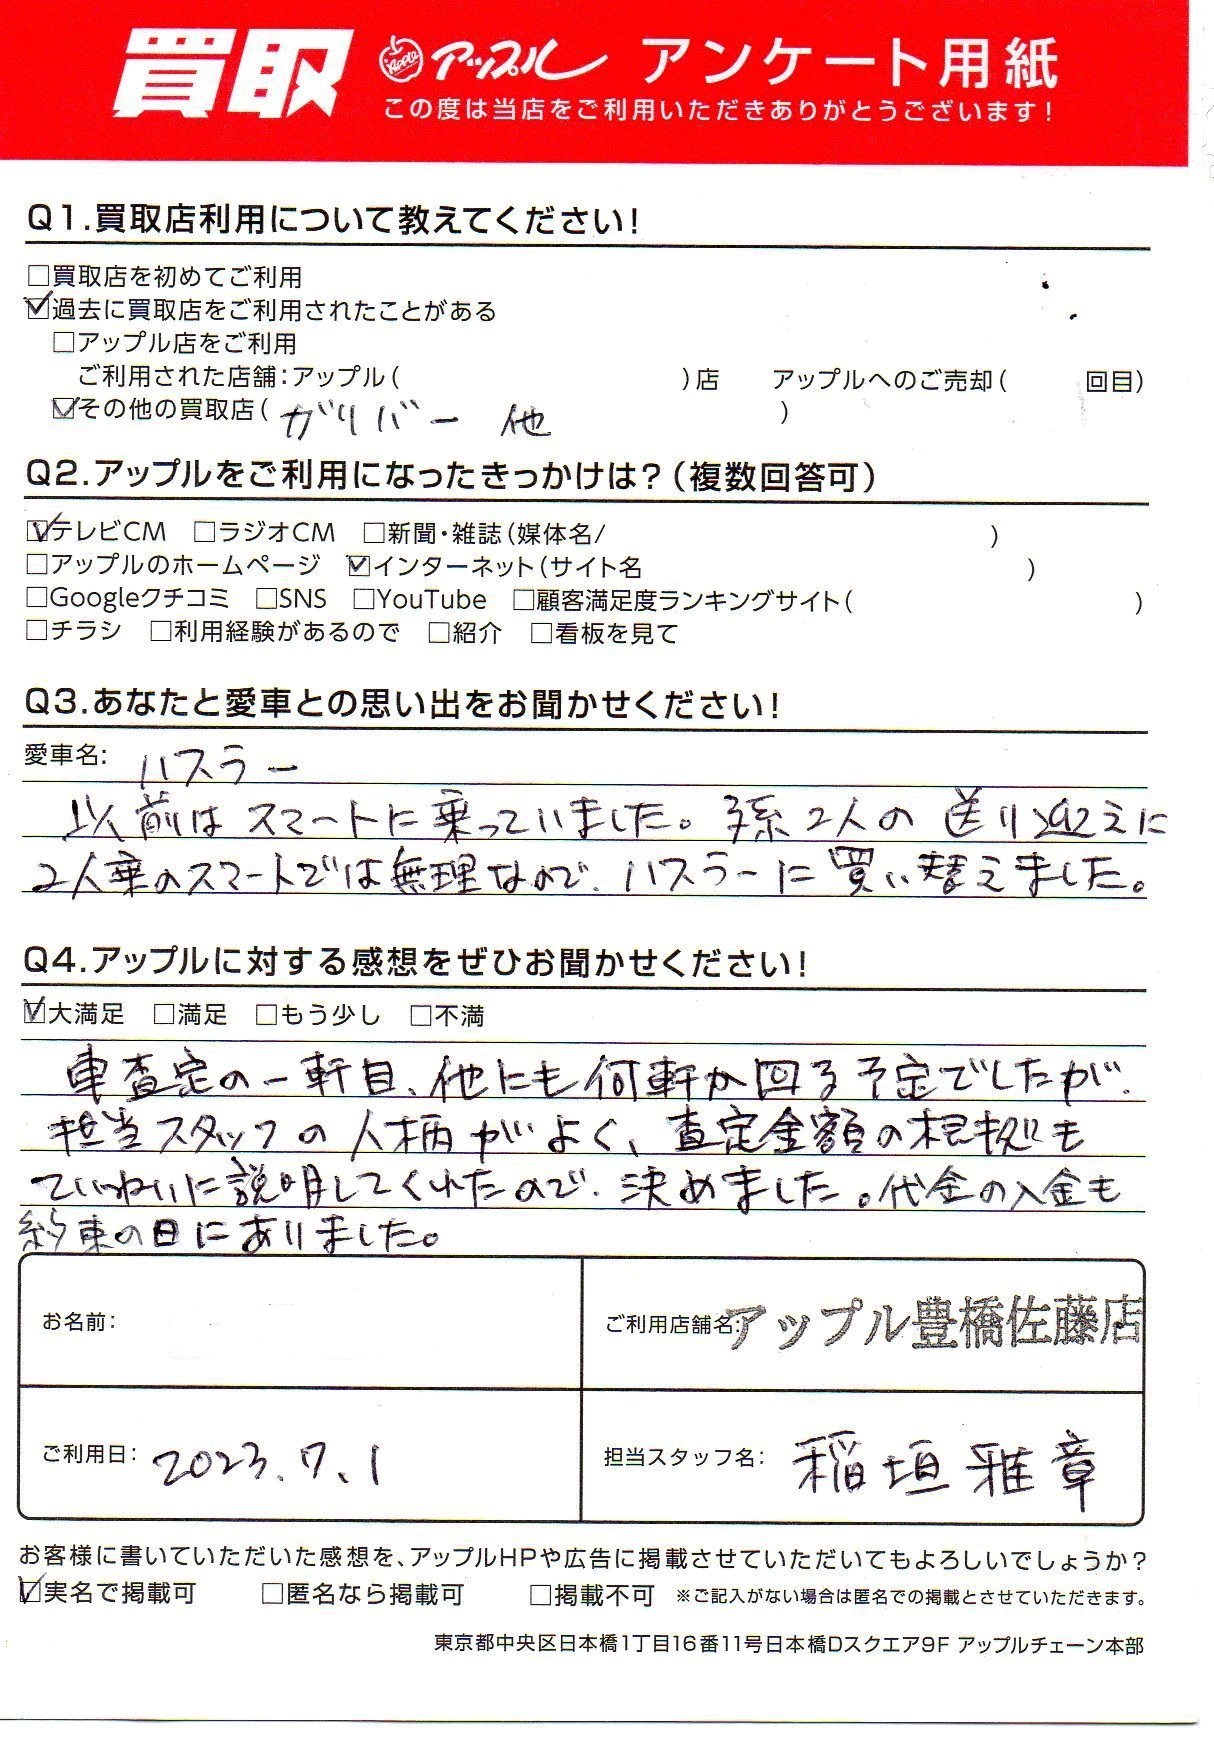 買取 Apple アップル アンケート用紙
この度は当店をご利用いただきありがとうございます!
Q1.買取店利用について教えてください!
□買取店を初めてご利用
☑過去に買取店をご利用されたことがある
□アップル店をご利用
ご利用された店舗:アップル( )店 アップルへのご売却( 回目)
☑その他の買取店( ガリバー 他 )
Q2.アップルをご利用になったきっかけは?(複数回答可)
☑テレビCM □ラジオCM □新聞・雑誌(媒体名/ )
□アップルのホームページ ☑インターネット(サイト名 )
□Googleクチコミ □SNS □YouTube □顧客満足度ランキングサイト( )
□チラシ □利用経験があるので □紹介 □看板を見て
Q3.あなたと愛車との思い出をお聞かせください!
愛車名: ハスラー
以前はスマートに乗っていました。孫2人の送り迎えに
2人乗のスマートでは無理なので、ハスラーに買い替えました。
Q4.アップルに対する感想をぜひお聞かせください!
☑大満足 □満足 □もう少し □不満
車査定の一軒目、他にも何軒か回る予定でしたが、
担当スタッフの人柄がよく、査定金額の根拠も
ていねいに説明してくれたので、決めました。代金の入金も
約束の日にありました。
お名前:
ご利用店舗名:アップル豊橋佐藤店
ご利用日: 2023.7.1
担当スタッフ名: 稲垣雅章
お客様に書いていただいた感想を、アップルHPや広告に掲載させていただいてもよろしいでしょうか?
☑実名で掲載可 □匿名なら掲載可 □掲載不可 ※ご記入がない場合は匿名での掲載とさせていただきます。
東京都中央区日本橋1丁目16番11号日本橋Dスクエア9F アップルチェーン本部